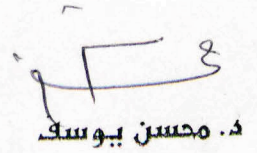 د. محسن يوسف